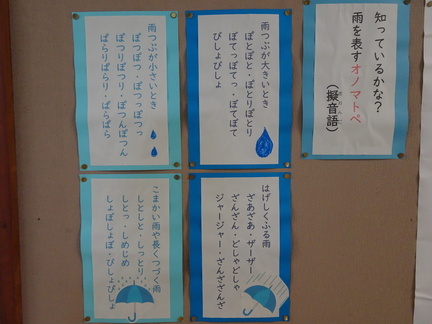 知っているかな？
雨を表すオノマトペ
（擬音語）
雨つぶが大きいとき
ぼとぼと・ぼとりぼとり
ぼてっぼてっ・ぼてぼて
びしょびしょ
雨つぶが小さいとき
ぽつぽつ・ぽつっぽつっ
ぽつりぽつり・ぽつんぽつん
ぱらりぱらり・ぱらぱら
はげしくふる雨
ざあざあ・ザーザー
ざんざん・どしゃどしゃ
ジャージャー・ざんざざんざ
こまかい雨や長くつづく雨
しとしと・しっとり
しとっ・しめじめ
しょぼしょぼ・びしょびしょ